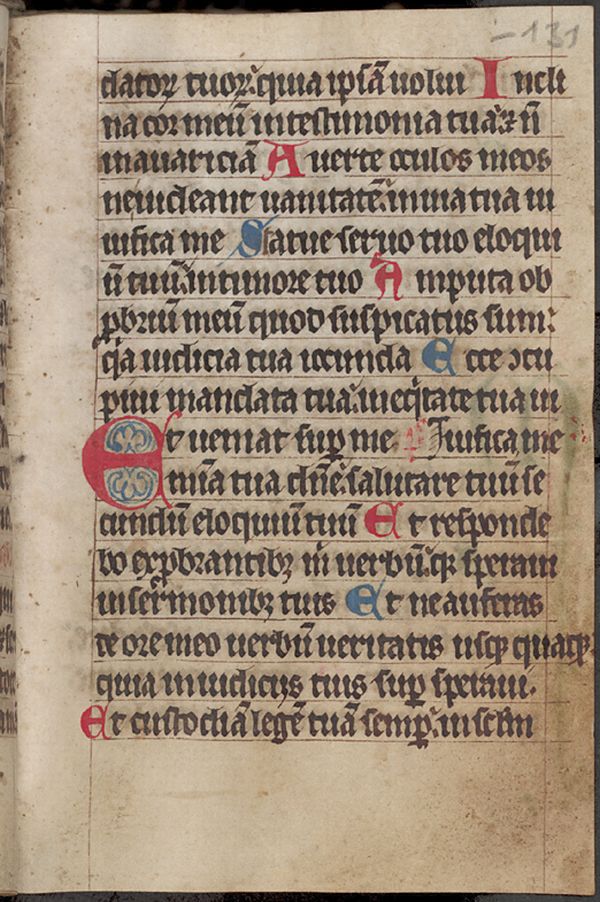 -131
datoꝝ tuoꝝ: quia ipſā uolui Incli
na cor meū in teſtimonia tua: ⁊ nō
in auariciā Auerte oculos meos
ne uideant uanitatē: in uia tua ui
uifica me Statue ſeruo tuo eloqui
ū tuū: in timore tuo Amputa ob
ꝓbriū meū quod ſuſpicatus ſum:
q̄a iudicia tua iocunda Ecce ↄcu
piui mandata tua: in eq̄tate tua ui
Et ueniat ſuꝑ me uifica me
mīa tua dn̄e: ſalutare tuū ſe
cundū eloquium tuū Et reſponde
bo exꝓbrantibꝫ m̄ uerbū: qꝛ ſperaui
in ſermonibꝫ tuis Et ne auferas
de ore meo uerbū ueritatis uſqꝫ quaqꝫ:
quia in iudicijs tuis ſuꝑ ſperaui.
Et cuſtodiā legē tuā ſemꝑ: in ſclm̄